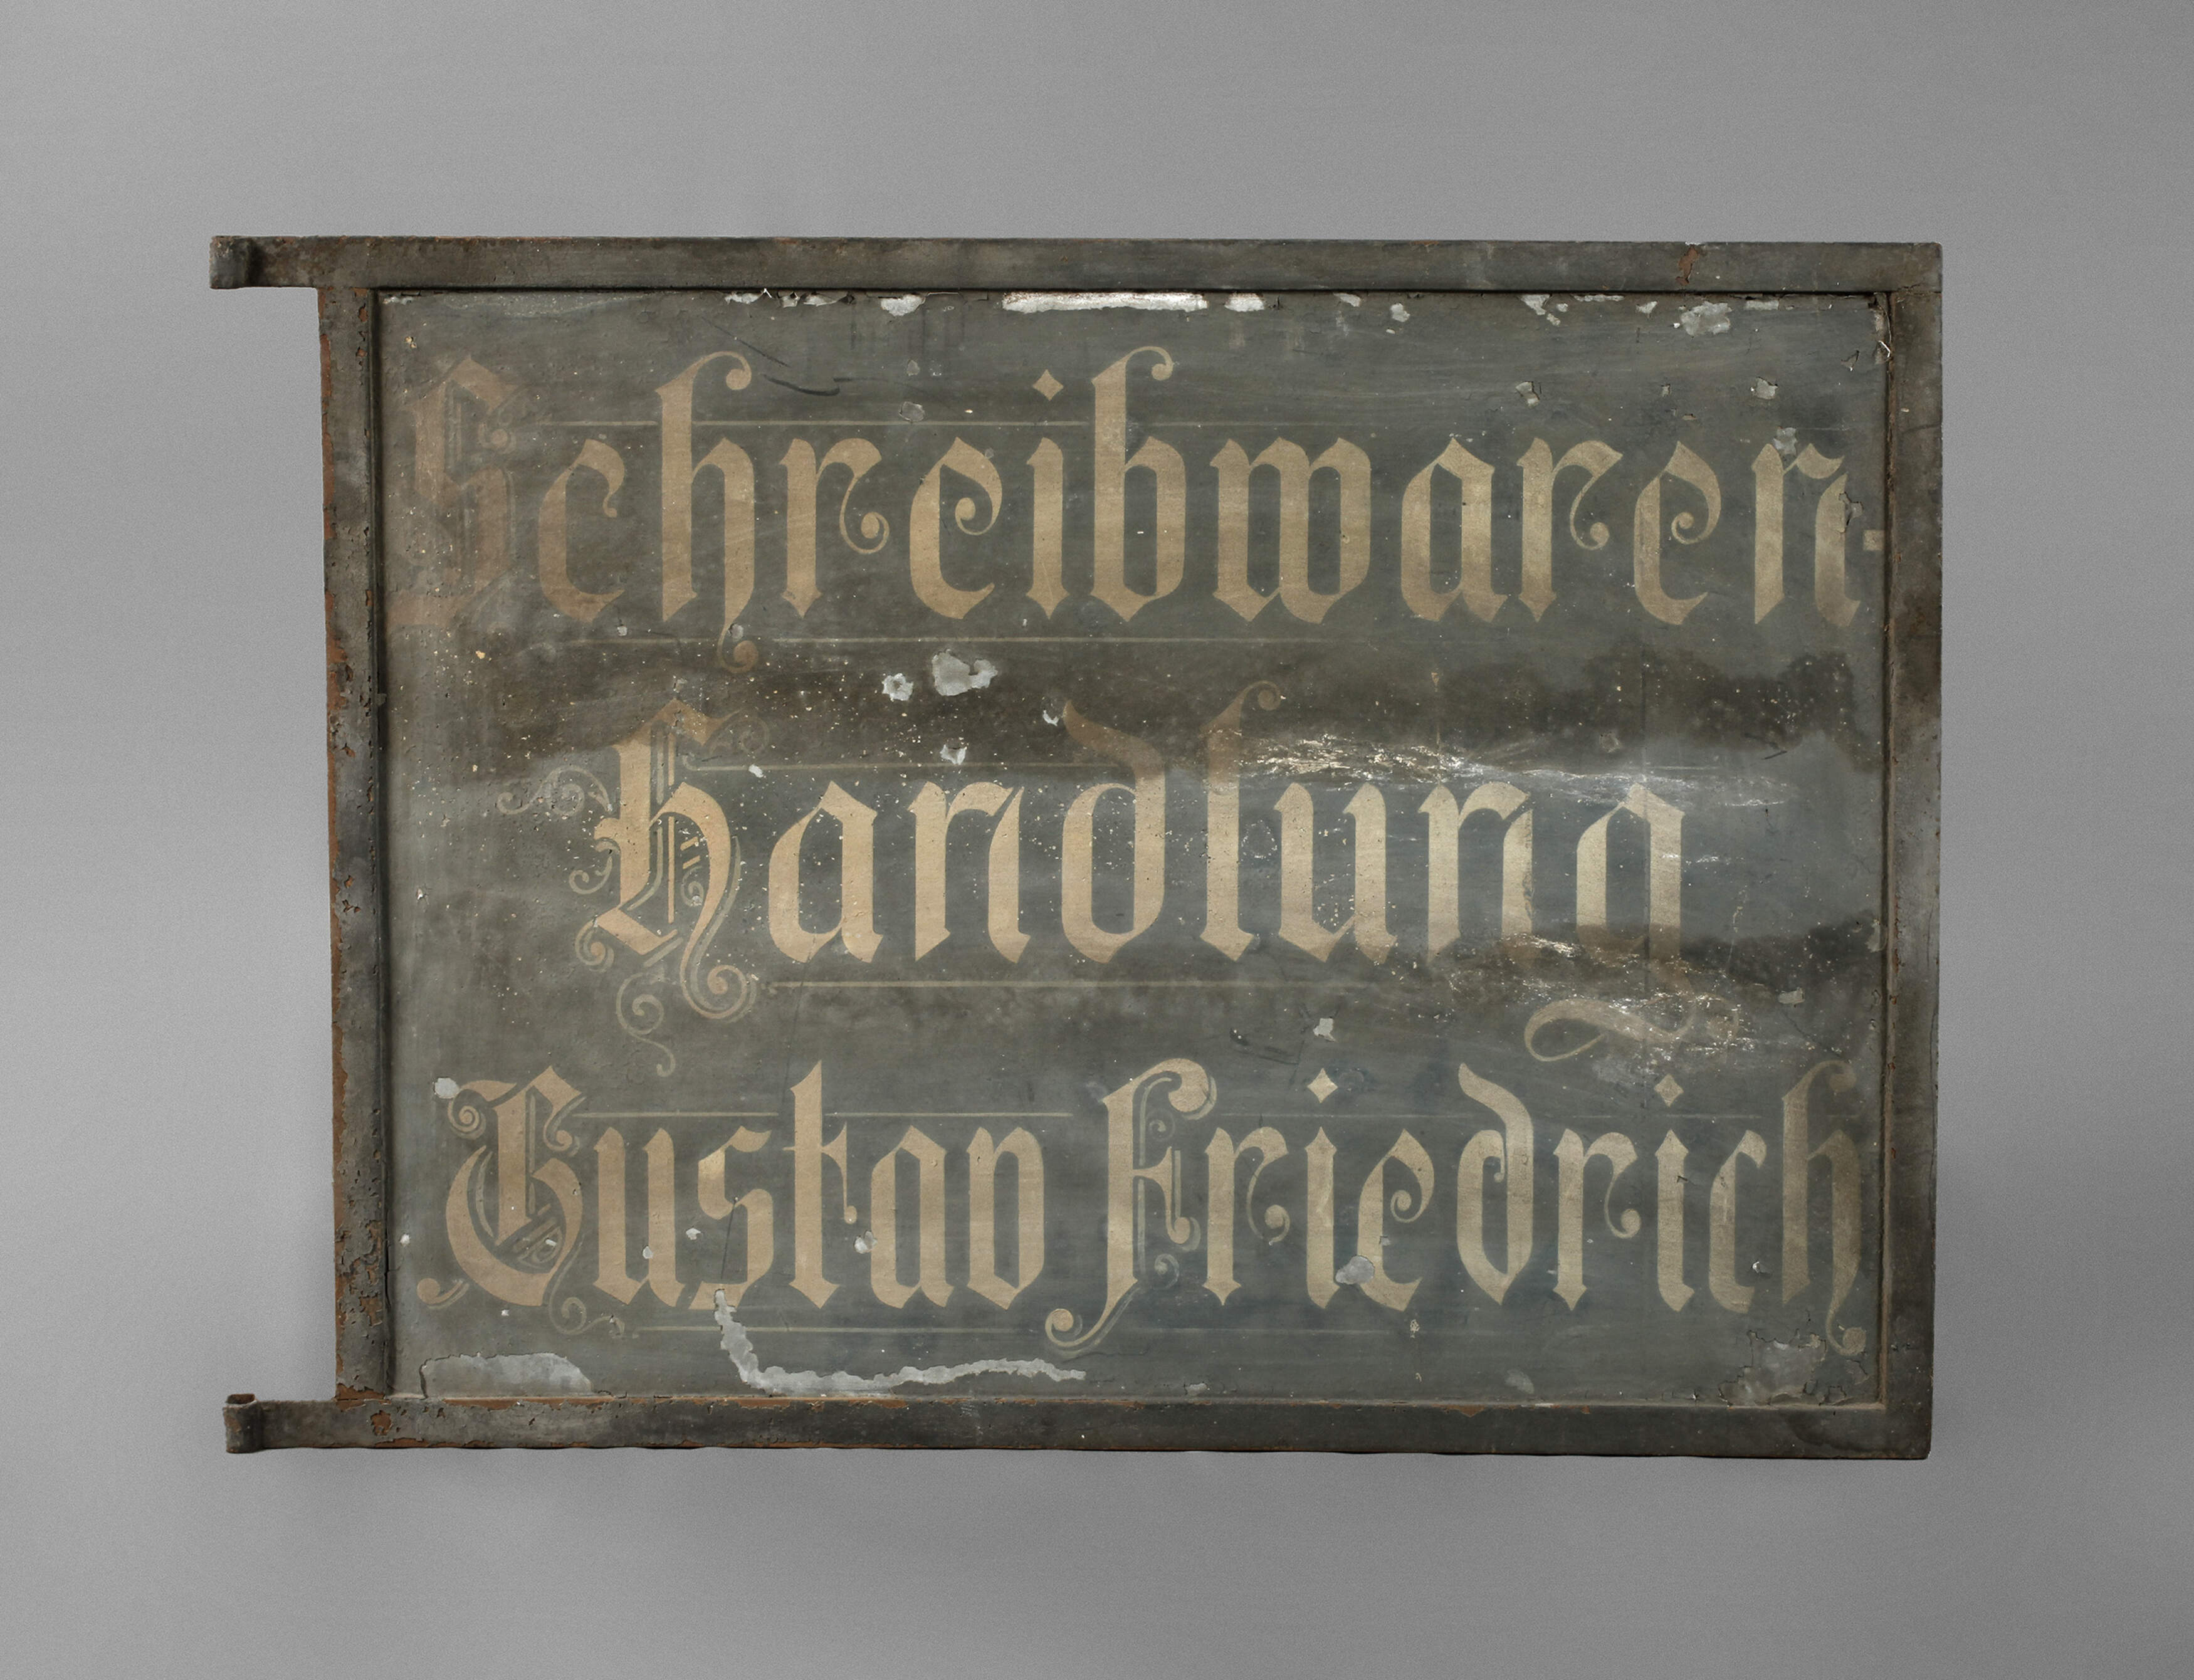 Schreibwaren-
Handlung
Gustav Friedrich